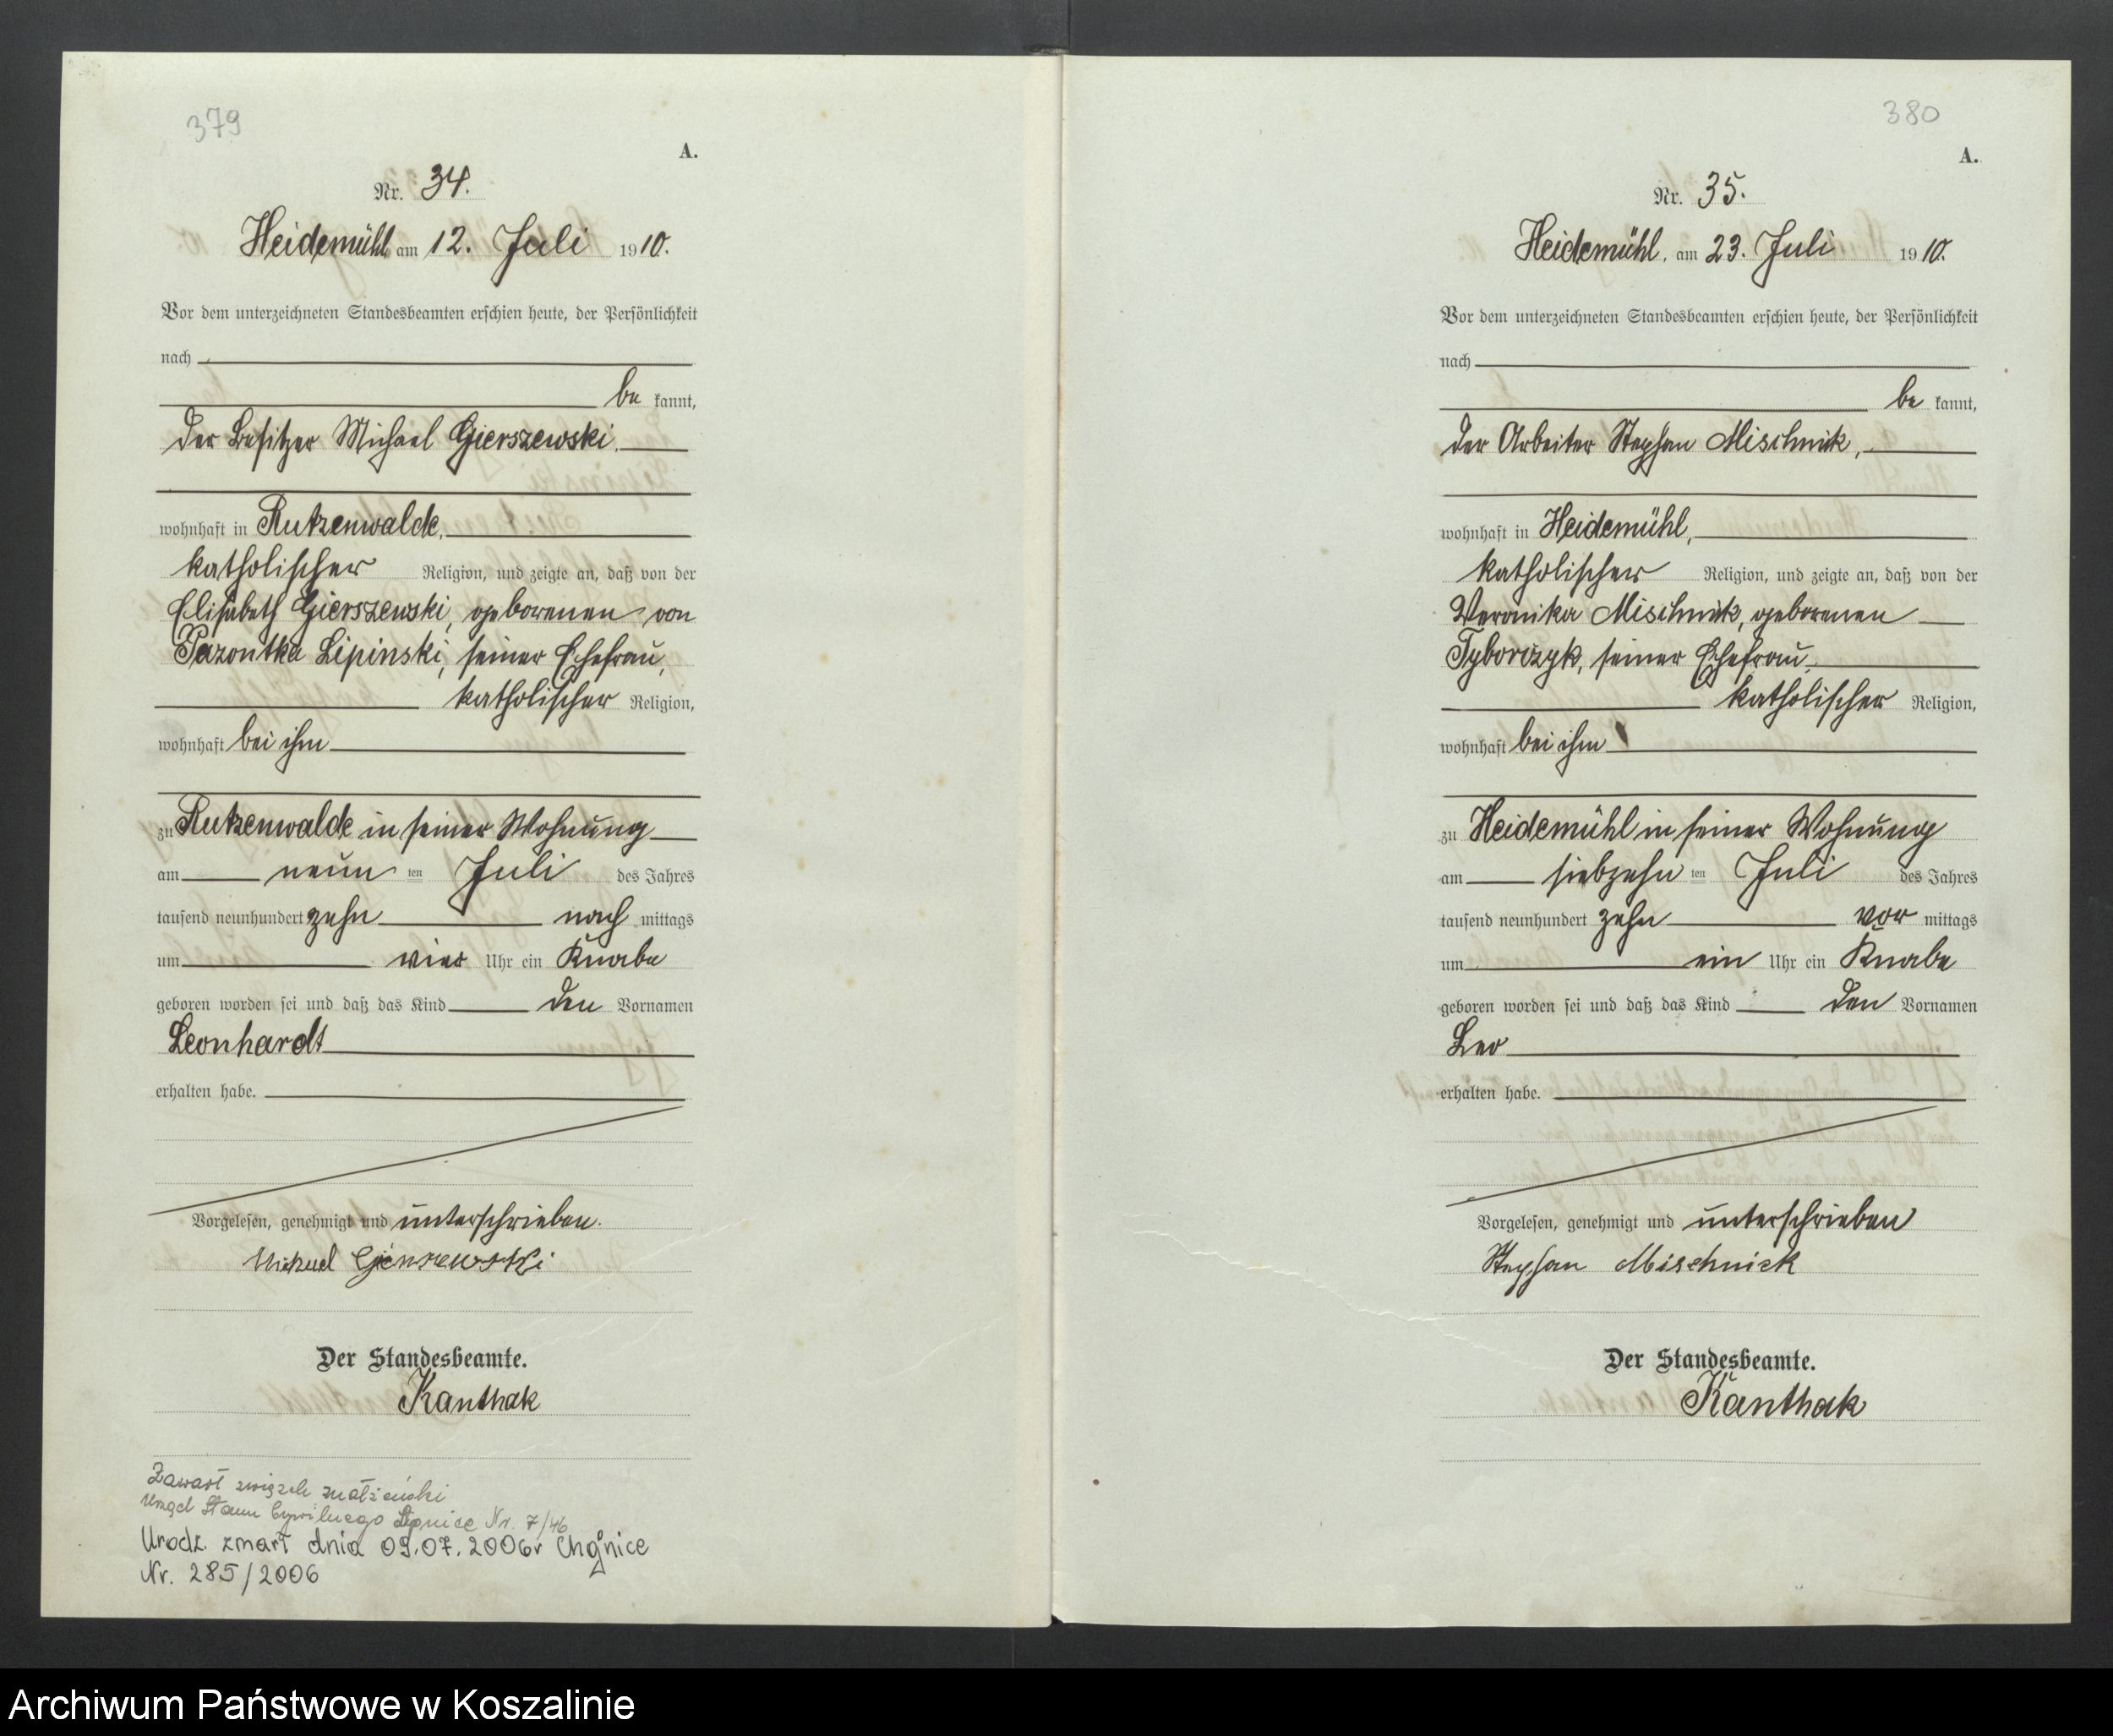 379
A.
Nr. 34.
Heidemühl am 12. Juli 1910.
Vor dem unterzeichneten Standesbeamten erschien heute, der Persönlichkeit
nach
be kannt,
der Besitzer Michael Gierszewski,
wohnhaft in Rutzenwalde,
katholischer Religion, und zeigte an, daß von der
Elisabeth Gierszewski, geborenen von
Pazontka Lipinski, seiner Ehefrau,
katholischer Religion,
wohnhaft bei ihm
zu Rutzenwalde in seiner Wohnung
am neun ten Juli des Jahres
tausend neunhundert zehn nach mittags
um vier Uhr ein Knabe
geboren worden sei und daß das Kind den Vornamen
Leonhardt
erhalten habe.
Vorgelesen, genehmigt und unterschrieben.
Michael Gierszewski
Der Standesbeamte.
Kanthak
Zawarł związek małżeński
Urząd Stanu Cywilnego Lipnice Nr. 7/46
Urodz. zmarł dnia 09.07.2006r Chojnice
Nr. 285/2006
380
A.
Nr. 35.
Heidemühl, am 23. Juli 1910.
Vor dem unterzeichneten Standesbeamten erschien heute, der Persönlichkeit
nach
be kannt,
der Arbeiter Stephan Mischnik,
wohnhaft in Heidemühl,
katholischer Religion, und zeigte an, daß von der
Veronika Mischnik, geborenen
Tyborczyk, seiner Ehefrau,
katholischer Religion,
wohnhaft bei ihm
zu Heidemühl in seiner Wohnung
am siebzehn ten Juli des Jahres
tausend neunhundert zehn vor mittags
um ein Uhr ein Knabe
geboren worden sei und daß das Kind den Vornamen
Leo
erhalten habe.
Vorgelesen, genehmigt und unterschrieben
Stephan Mischnick
Der Standesbeamte.
Kanthak
Archiwum Państwowe w Koszalinie